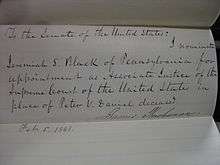 To the Senate of the United States:
I nominate
Jeremiah S. Black of Pennsylvania for
appointment as Associate Justice of the
Supreme Court of the United States in
place of Peter V. Daniel deceased.
James Buchanan
Feb 5. 1861.